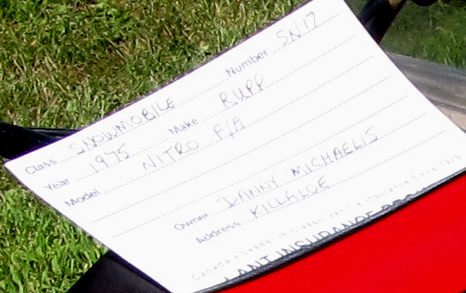 Class SNOWMOBILE Number SN17
Year 1975 Make RUPP
Model NITRO F/A
Owner DANNY MICHAELIS
Address KILLALOE
LANT INSURANCE